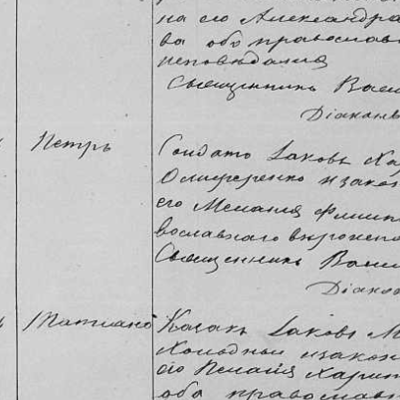 на его Александра
ва обо православ
исповедания
Священникъ Васи
Діаконъ
Петръ
Солдатъ Іаковъ Ха
Олиференко и закон
его Меланія Филип
вославнаго вѣроиспо
Священникъ Васи
Діакон
Татіана
Казакъ Іаковъ М
Холодный и закон
его Пелагія Харит
оба православн